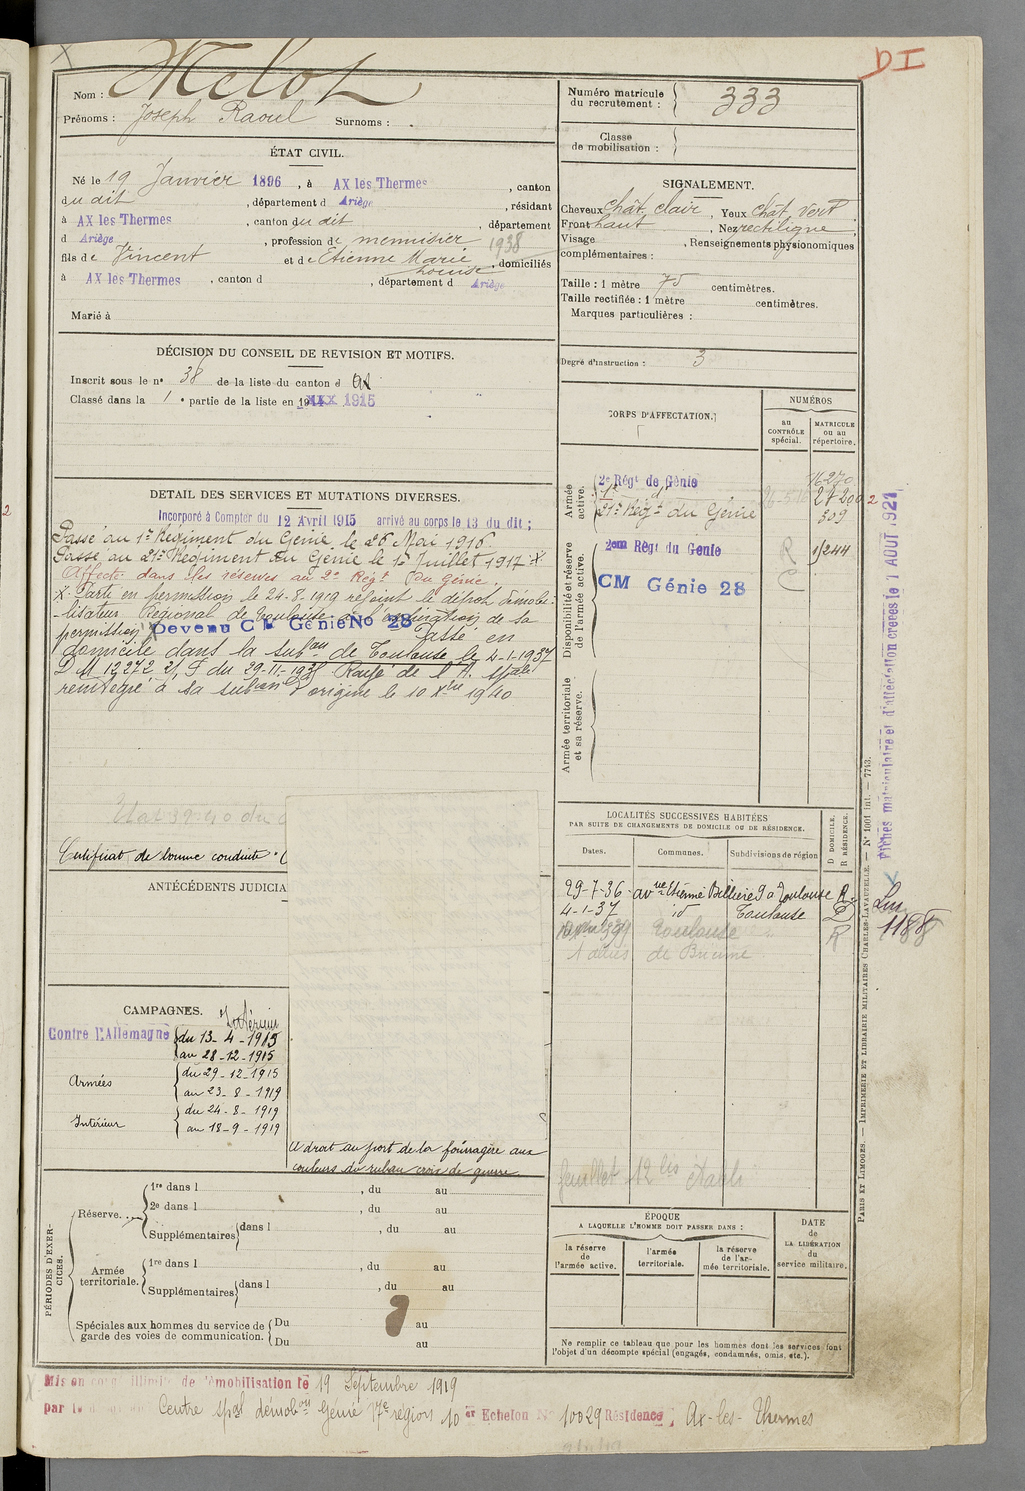 DI
Nom : Melot
Prénoms : Joseph Raoul Surnoms : .
Numéro matricule du recrutement : 333
Classe de mobilisation :
ÉTAT CIVIL.
Né le 19 Janvier 1896, à AX les Thermes, canton
du dit, département d Ariège, résidant
à AX les Thermes, canton du dit, département
d Ariège, profession de menuisier 1938
fils de Vincent et de Etienne Marie Louise, domiciliés
à AX les Thermes, canton d , département d Ariège
Marié à
SIGNALEMENT.
Cheveux chât. clair, Yeux chât. vert
Front haut, Nez rectiligne
Visage , Renseignements physionomiques
complémentaires :
Taille : 1 mètre 75 centimètres.
Taille rectifiée : 1 mètre centimètres.
Marques particulières :
Degré d'instruction : 3
DÉCISION DU CONSEIL DE REVISION ET MOTIFS.
Inscrit sous le n° 38 de la liste du canton d Ax
Classé dans la 1e partie de la liste en 1915
CORPS D'AFFECTATION.
NUMÉROS
au CONTRÔLE spécial.
MATRICULE ou au répertoire.
Armée active.
2e Régt de Génie 16270
1e d° 27200
21e Régt du Génie 309
Disponibilité et réserve de l'armée active.
2em Régt du Genie 1/244
CM Génie 28
R
C
Armée territoriale et sa réserve.
DETAIL DES SERVICES ET MUTATIONS DIVERSES.
Incorporé à Compter du 12 Avril 1915 arrivé au corps le 13 du dit ;
Passé au 1er Régiment du Génie le 26 Mai 1916
Passé au 21e Régiment du Génie le 1er Juillet 1917 X
Affecté dans les réserves au 2e Régt du Génie.
X Parti en permission le 24-8-1919 rejoint le dépôt démobi-
lisateur Régional de Toulouse à l'expiration de sa
permission Devenu CM Génie No 28 Passé en
domicile dans la subon de Toulouse le 4-1-1937
D M 12272 2/, S du 29-11-1938 Rayé de l'A. Spale
réintégré à sa subon d'origine le 10 Xbre 1940
Etat 39 40 du
Certificat de bonne conduite "
ANTÉCÉDENTS JUDICIA
LOCALITÉS SUCCESSIVES HABITÉES
PAR SUITE DE CHANGEMENTS DE DOMICILE OU DE RÉSIDENCE.
Dates. Communes. Subdivisions de région
D DOMICILE.
R RÉSIDENCE.
29-7-36 avue Etienne Billières 9 à Toulouse R
4-1-37 id Toulouse D
Toulouse R
de Brienne
Feuillet 12 bis établi
1188
Fiches matriculaire et d'affectation créées le 1 AOUT 1921
CAMPAGNES.
Contre l'Allemagne
Intérieur
du 13-4-1915
au 28-12-1915
Armées
du 29-12-1915
au 23-8-1919
Intérieur
du 24-8-1919
au 18-9-1919
A droit au port de la fourragère aux
couleurs du ruban croix de guerre
PÉRIODES D'EXERCICES.
Réserve.
1re dans l , du au
2e dans l , du au
Supplémentaires dans l , du au
Armée territoriale.
1re dans l , du au
Supplémentaires dans l , du au
Spéciales aux hommes du service de garde des voies de communication.
Du au
Du au
ÉPOQUE
A LAQUELLE L'HOMME DOIT PASSER DANS :
la réserve de l'armée active.
l'armée territoriale.
la réserve de l'armée territoriale.
DATE de LA LIBÉRATION du service militaire.
Ne remplir ce tableau que pour les hommes dont les services font
l'objet d'un décompte spécial (engagés, condamnés, omis, etc.).
PARIS ET LIMOGES. — IMPRIMERIE ET LIBRAIRIE MILITAIRES CHARLES-LAVAUZELLE. — N° 1001 int. — 7743.
Mis en congé illimité de démobilisation le 19 Septembre 1919
par le Centre spal démobon Génie 17e région 10 er Echelon N° 10029 Résidence : Ax-les-Thermes